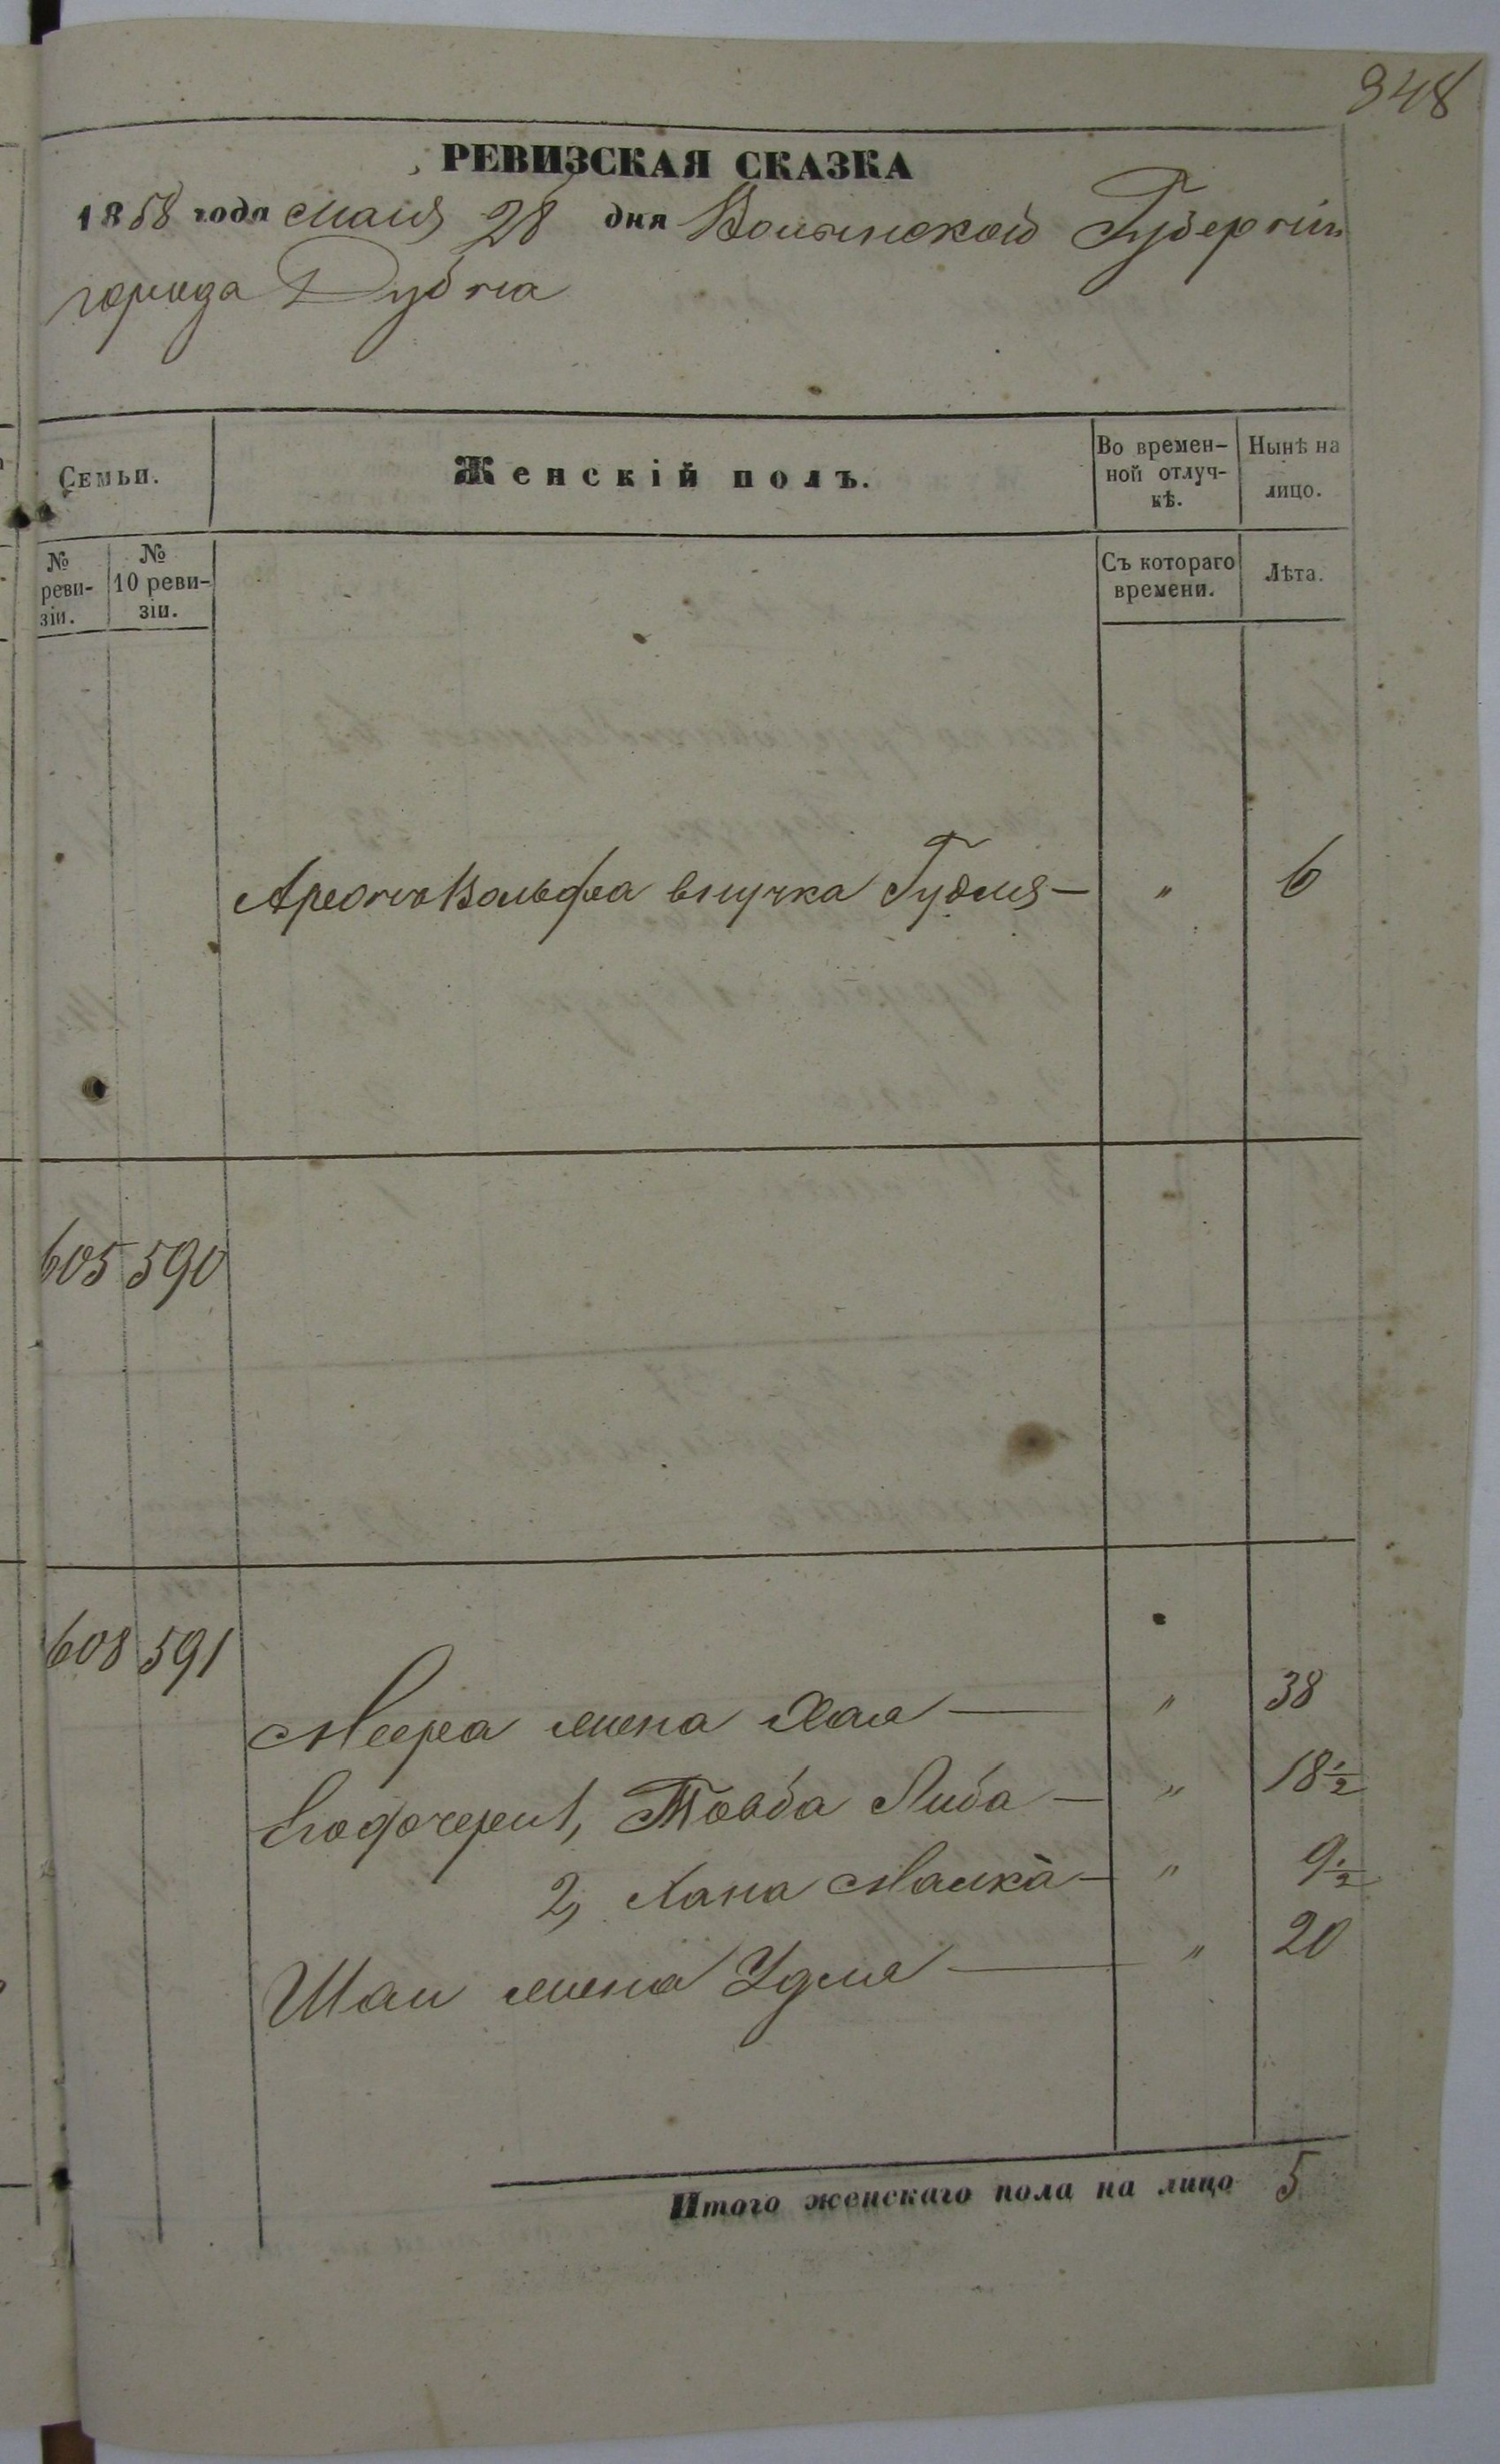 948
РЕВИЗСКАЯ СКАЗКА
1858 года Мая 28 дня Волынской Губернiи
города Дубна
Семьи. Женскій полъ. Во времен-ной отлуч-кѣ. Нынѣ на лицо.
№ реви-зіи. № 10 реви-зіи. Съ котораго времени. Лѣта.
Аронъ Вольфа внучка Гудля — " 6
605 590
608 591
Меера жена Хая — " 38
Его дочери 1, Товба Либа — " 18½
2, Хана Малка — " 9½
Шаи жена Удля — " 20
Итого женскаго пола на лицо 5